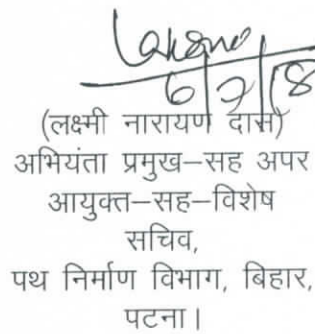 6/7/18
(लक्ष्मी नारायण दास)
अभियंता प्रमुख–सह अपर
आयुक्त–सह–विशेष
सचिव,
पथ निर्माण विभाग, बिहार,
पटना।